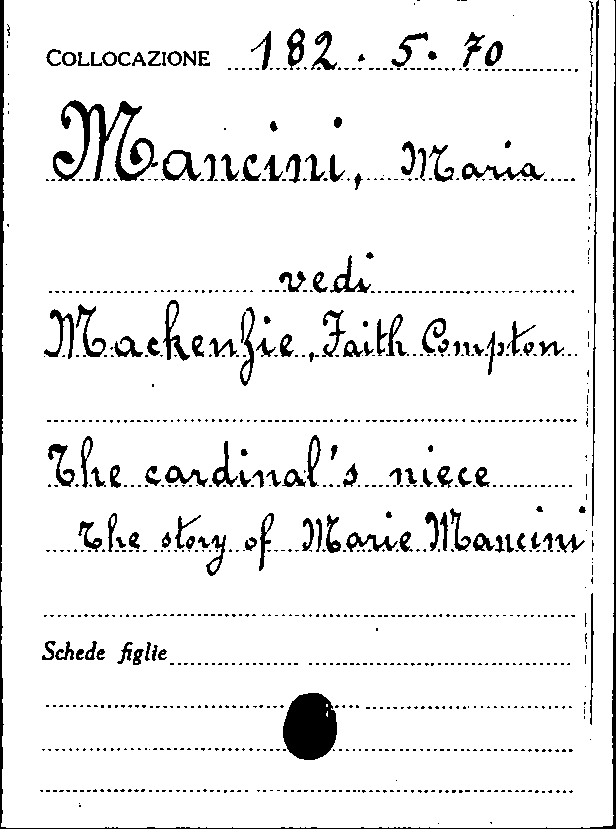 COLLOCAZIONE 182.5.70
Mancini, Maria
vedi
Mackenzie, Faith Compton
The cardinal's niece
The story of Marie Mancini
Schede figlie